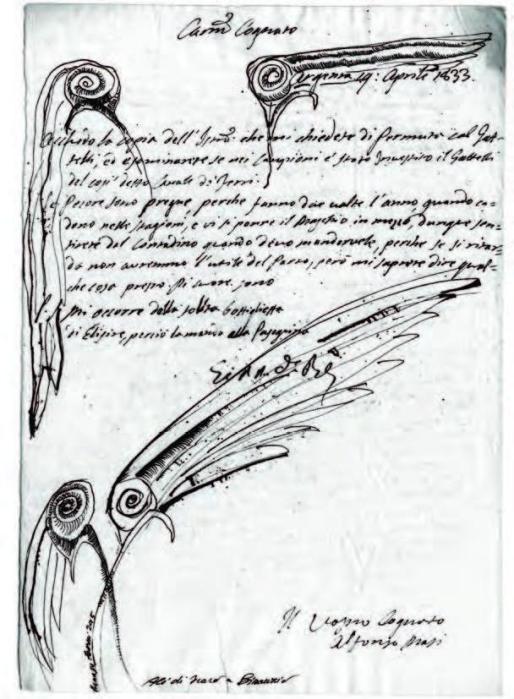 Carmo Cognato
Argenta 19: Aprile 1833.
Accludo la copia dell' che mi chiedete di firmata cal Gat-
telli, ed esaminarete se nei Campioni è stato investito il Gattelli
del così detto Canale di Ferri.
Le Pecore sono pregne, perche fanno due volte l'anno quando ca-
dono nelle stagioni, e vi si pone il in mezzo, dunque sen-
tirete dal Contadino quando devo mandarvele, perche se si ritar-
da non avremmo l'utile del Parto, però mi saprete dire qual-
che cosa presso. Di cuore sono
Mi occorre della solita bottiglietta
di Elisire, perciò la mando alla
Il Vostro Cognato
Alfonso
Ali di Icaro e